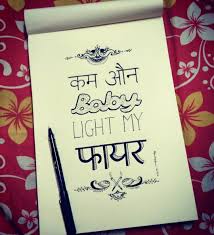 कम औन
Baby
LIGHT MY
फायर